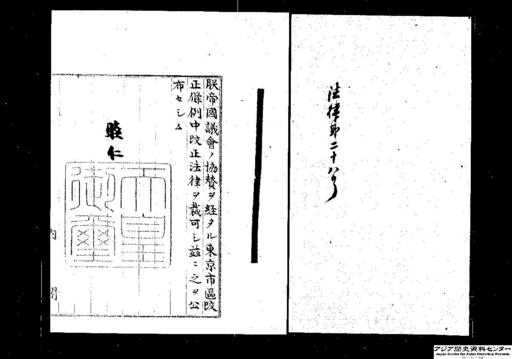 法律第二十八号
朕帝國議會ノ協賛ヲ経タル東京市區改
正條例中改正法律ヲ裁可シ茲ニ之ヲ公
布セシム
睦仁
天皇
御璽
内閣
アジア歴史資料センター
Japan Center for Asian Historical Records